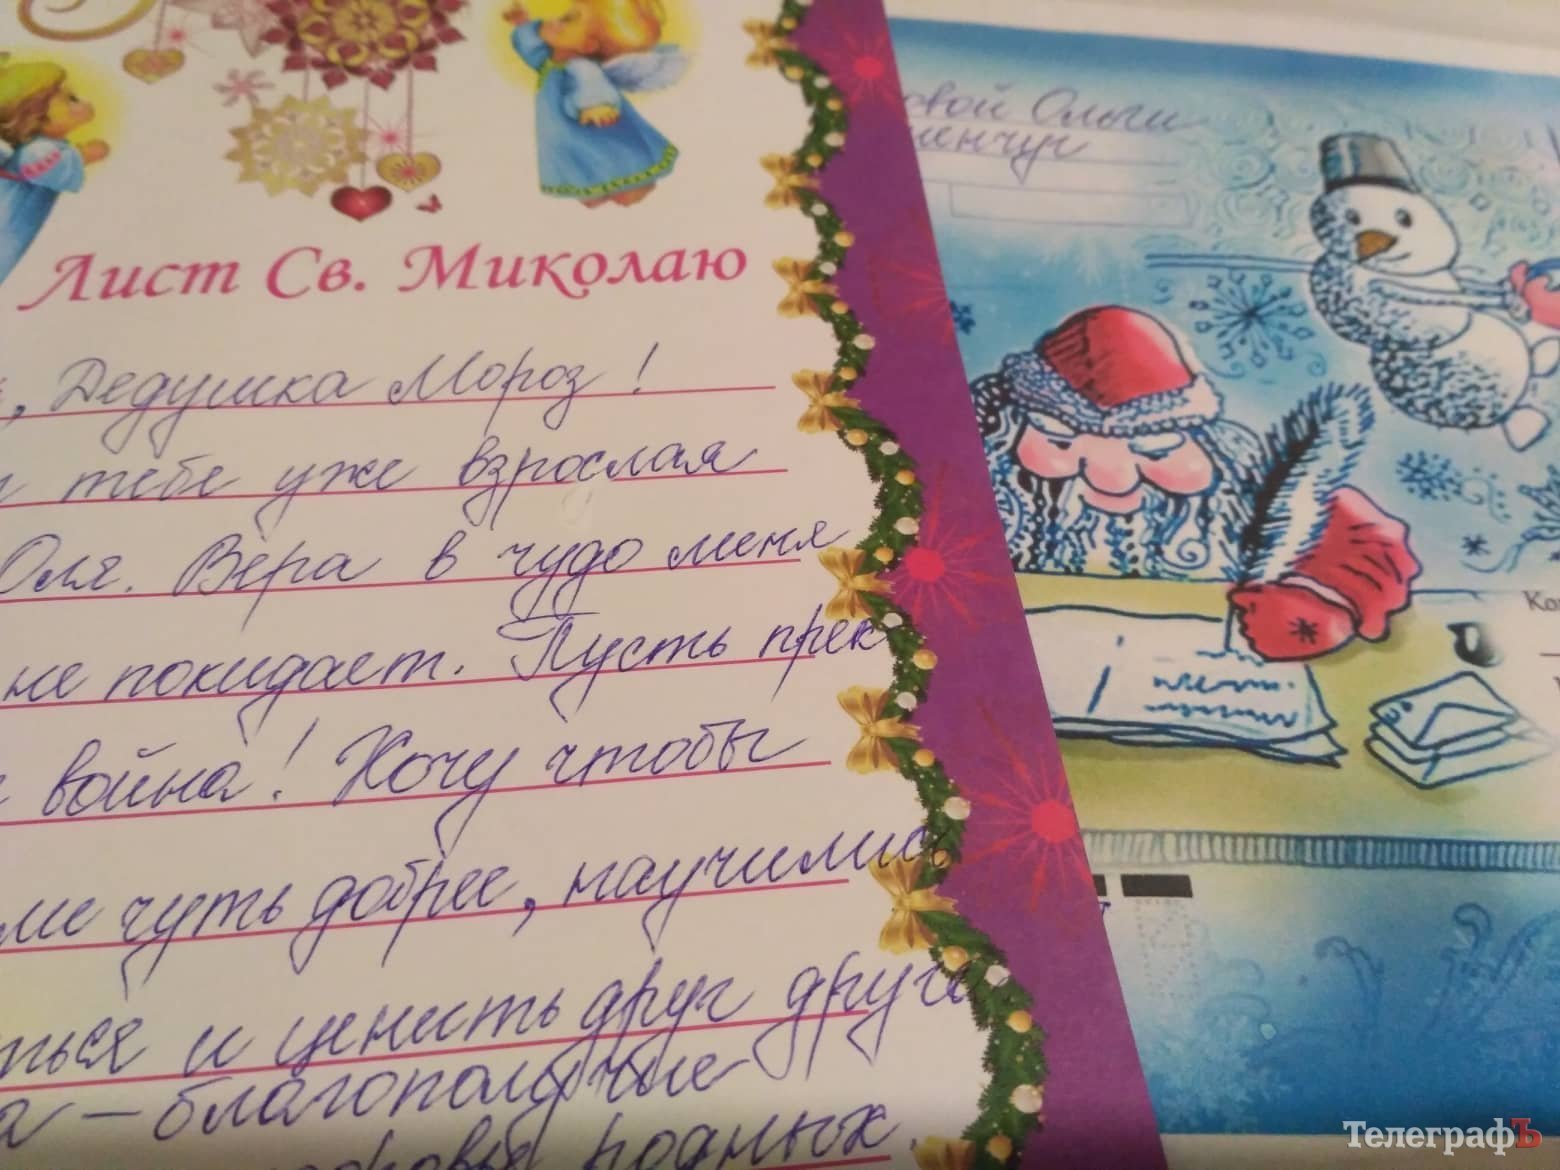 Лист Св. Миколаю
, Дедушка Мороз!
тебе уже взрослая
Оля. Вера в чудо меня
не покидает. Пусть прек
война! Хочу чтобы
чуть добрее, научились
ться и ценить друг друга
а - благополучие
родных
овой Ольги
менчуг
ТелеграфЪ